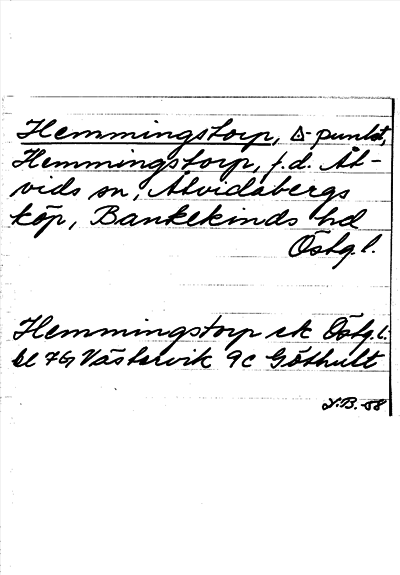 Hemmingstorp, △-punkt,
Hemmingstorp, f.d. Åt-
vids sn, Åtvidabergs
köp, Bankekinds hd
Östg.l.
Hemmingstorp ek Östg.l.
bl 7G Västervik 9c Göthult
-58